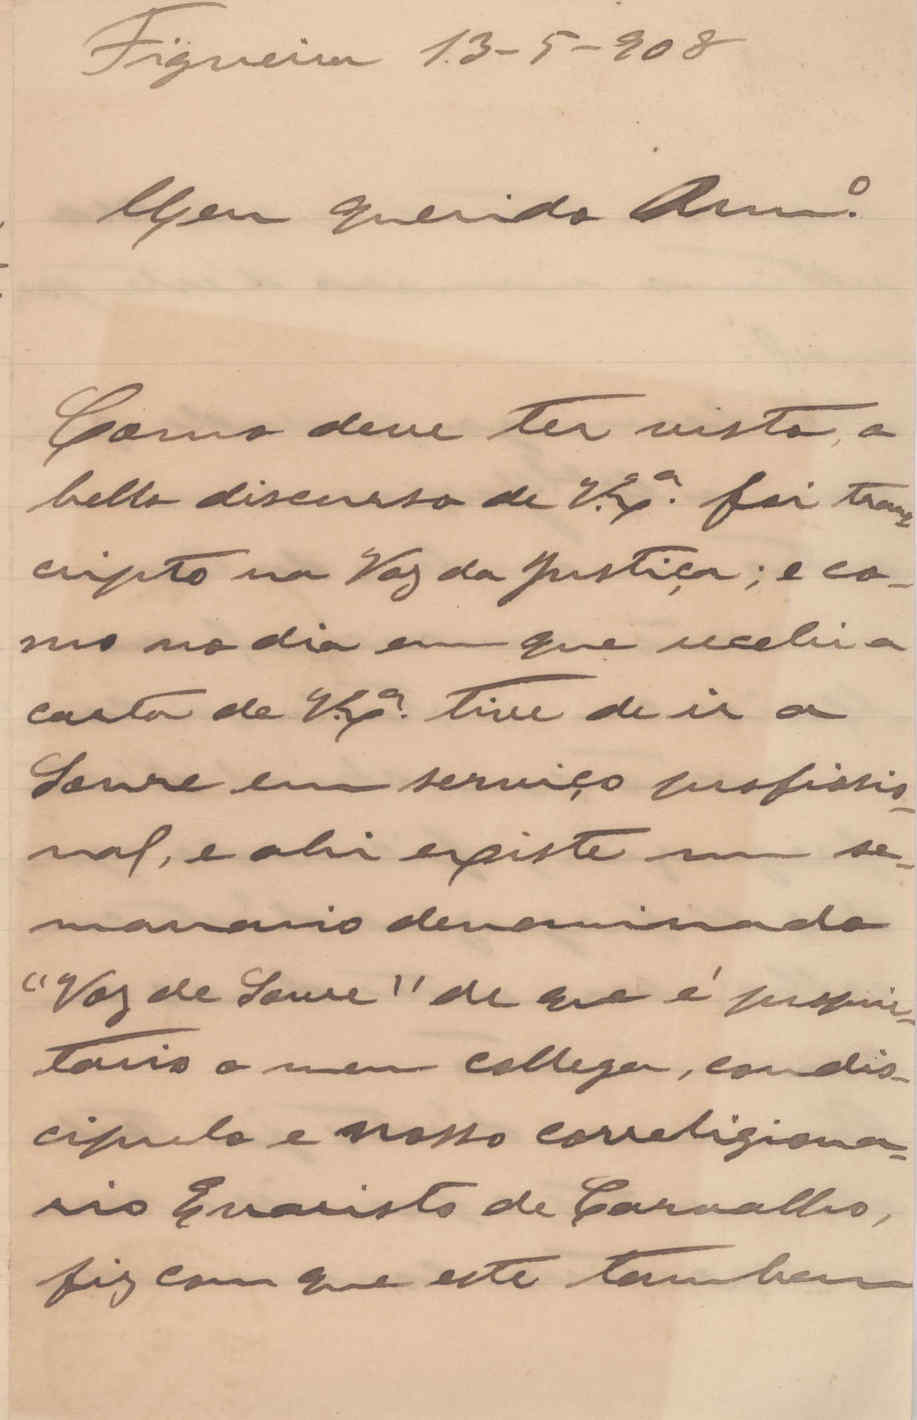 Figueira 13-5-908
Meu querido Am.º
Como deve ter visto, o
bello discurso de V. Ex.ª foi trans
cripto na Voz da Justiça; e co-
mo no dia em que recebi a
carta de V. Ex.ª tive de ir a
Soure em serviço profissio-
nal, e ahi existe um se-
manario denominado
"Voz de Soure" de que é proprie-
tario o meu collega, condis-
cipulo e nosso correligiona-
rio Evaristo de Carvalho,
fiz com que este tambem